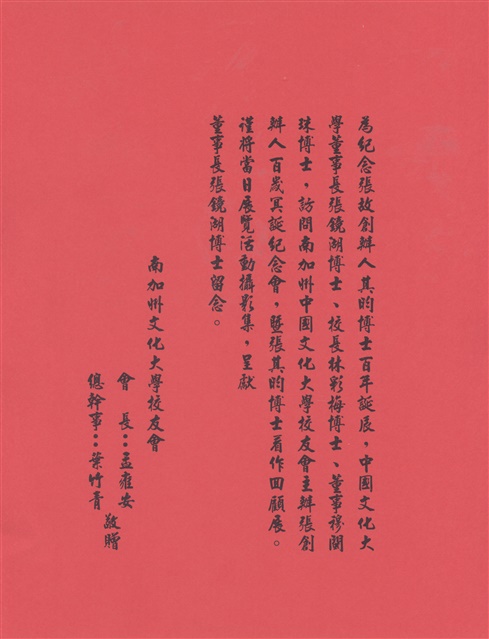 為紀念張故創辦人其昀博士百年誕辰，中國文化大
學董事長張鏡湖博士、校長林彩梅博士、董事穆閩
珠博士，訪問南加州中國文化大學校友會主辦張創
辦人百歲冥誕紀念會，暨張其昀博士著作回顧展。
謹將當日展覽活動攝影集，呈獻
董事長張鏡湖博士留念。
南加州文化大學校友會
會　長：孟雍安
總幹事：葉竹青
敬贈